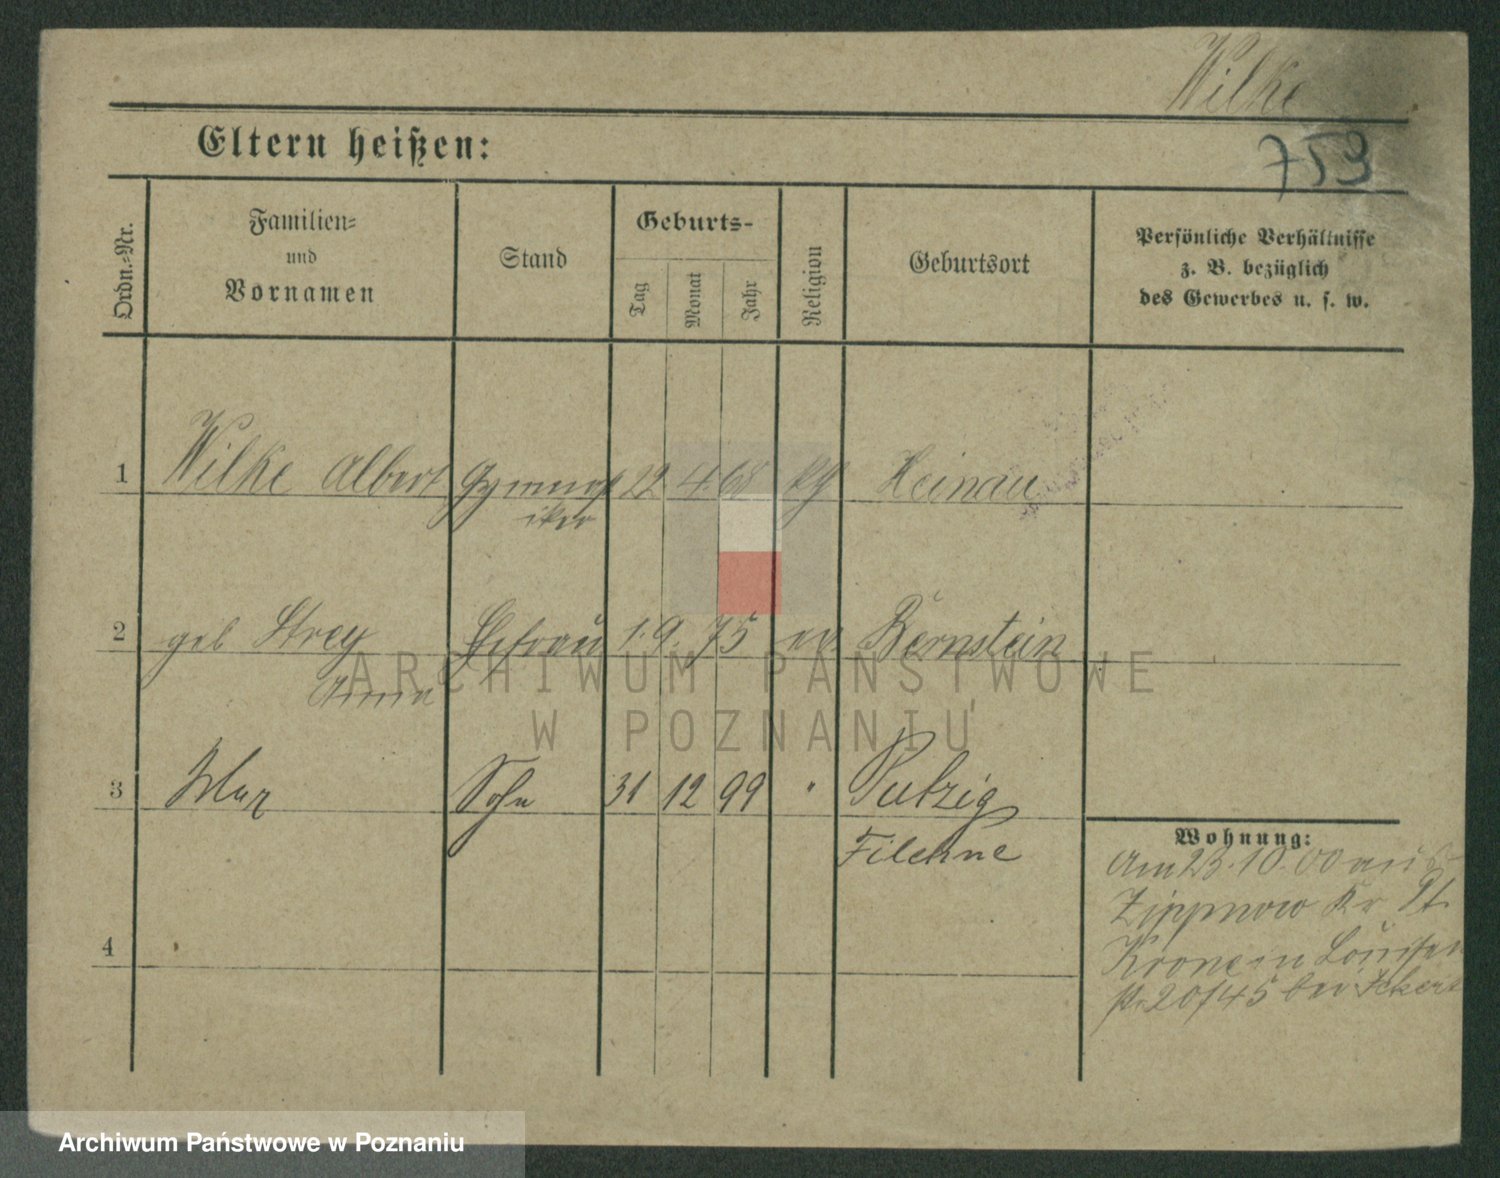 Wilke
Eltern heißen:
753
Ordn.-Nr.
Familien-
und
Vornamen
Stand
Geburts-
Tag
Monat
Jahr
Religion
Geburtsort
Persönliche Verhältnisse
z. B. bezüglich
des Gewerbes u. s. w.
1 Wilke Albert Gymnast 22 4 68 Heinau
iker
2 geb Strey Ehefrau 1. 9. 75 ev. Bernstein
Anna
3 Max Sohn 31 12 99 " Putzig
Filehne
4
Wohnung:
Am 23.10.00 aus
Zippnow Kr. Dt.
Krone in Louisen
20/45 bei
ARCHIWUM PAŃSTWOWE
W POZNANIU
Archiwum Państwowe w Poznaniu